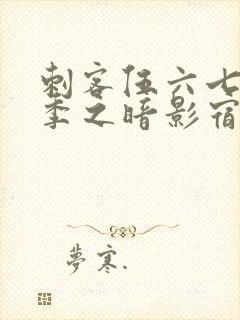 刺客伍六七
季之暗影宿
夢寒.